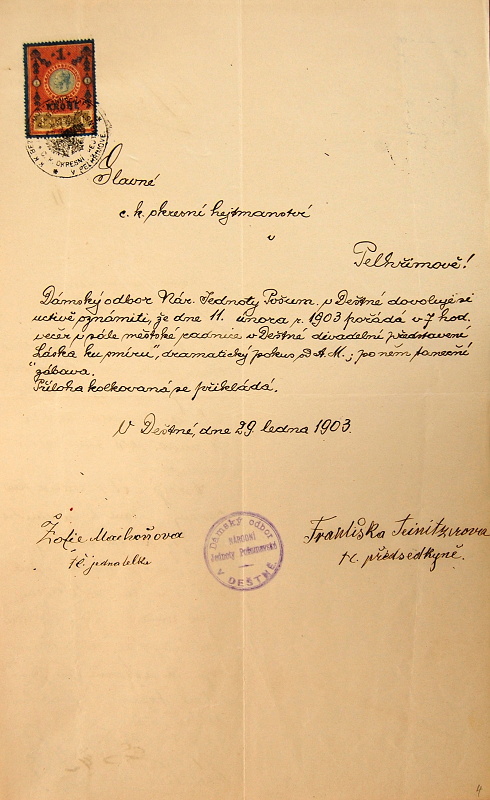 1
KRONE
C. K. OKRESNÍ HEJ
V PELHŘIMOVĚ
Slavné
c. k. okresní hejtmanství
v
Pelhřimově!
Dámský odbor Nár. Jednoty Pošum. v Deštné dovoluje si
uctivě oznámiti, že dne 11. února r. 1903 pořádá v 7 hod.
večer v sále městské radnice v Deštné divadelní představení
„Láska ku smíru“, dramatický pokus D. A. M.; po něm taneční
zábava.
Příloha kolkovaná se přikládá.
V Deštné, dne 29. ledna 1903.
Žofie Machoňova
tč. jednatelka
Dámský odbor
NÁRODNÍ
Jednoty Pošumavské
V DEŠTNÉ
Františka
tč. předsedkyně.
4